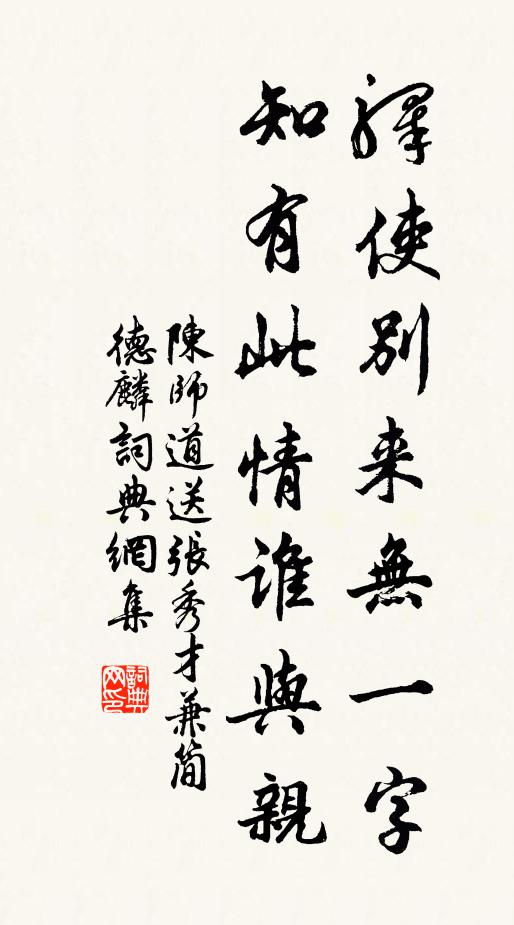 驛使別来無一字
知有此情誰與親
陳師道送張秀才兼簡
德麟詞典網集
詞典
网印